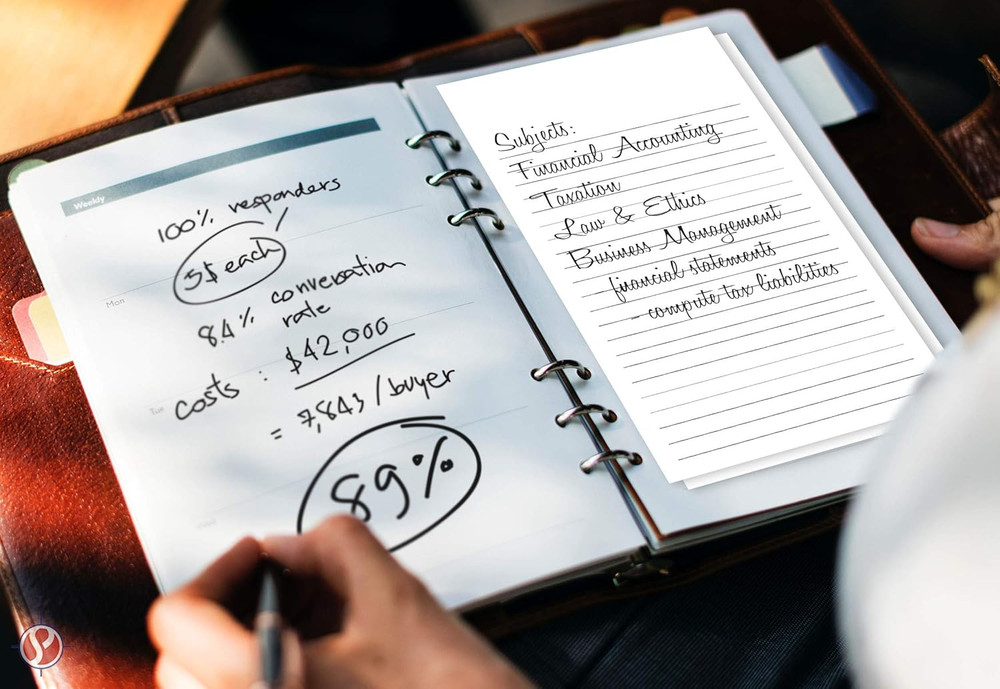 Weekly
100% responders
3$ each
Mon
8.4% conversation
rate
Tue
costs : $42,000
= 7,843 / buyer
89%
Subjects:
Financial Accounting
Taxation
Law & Ethics
Business Management
financial statements
- compute tax liabilities